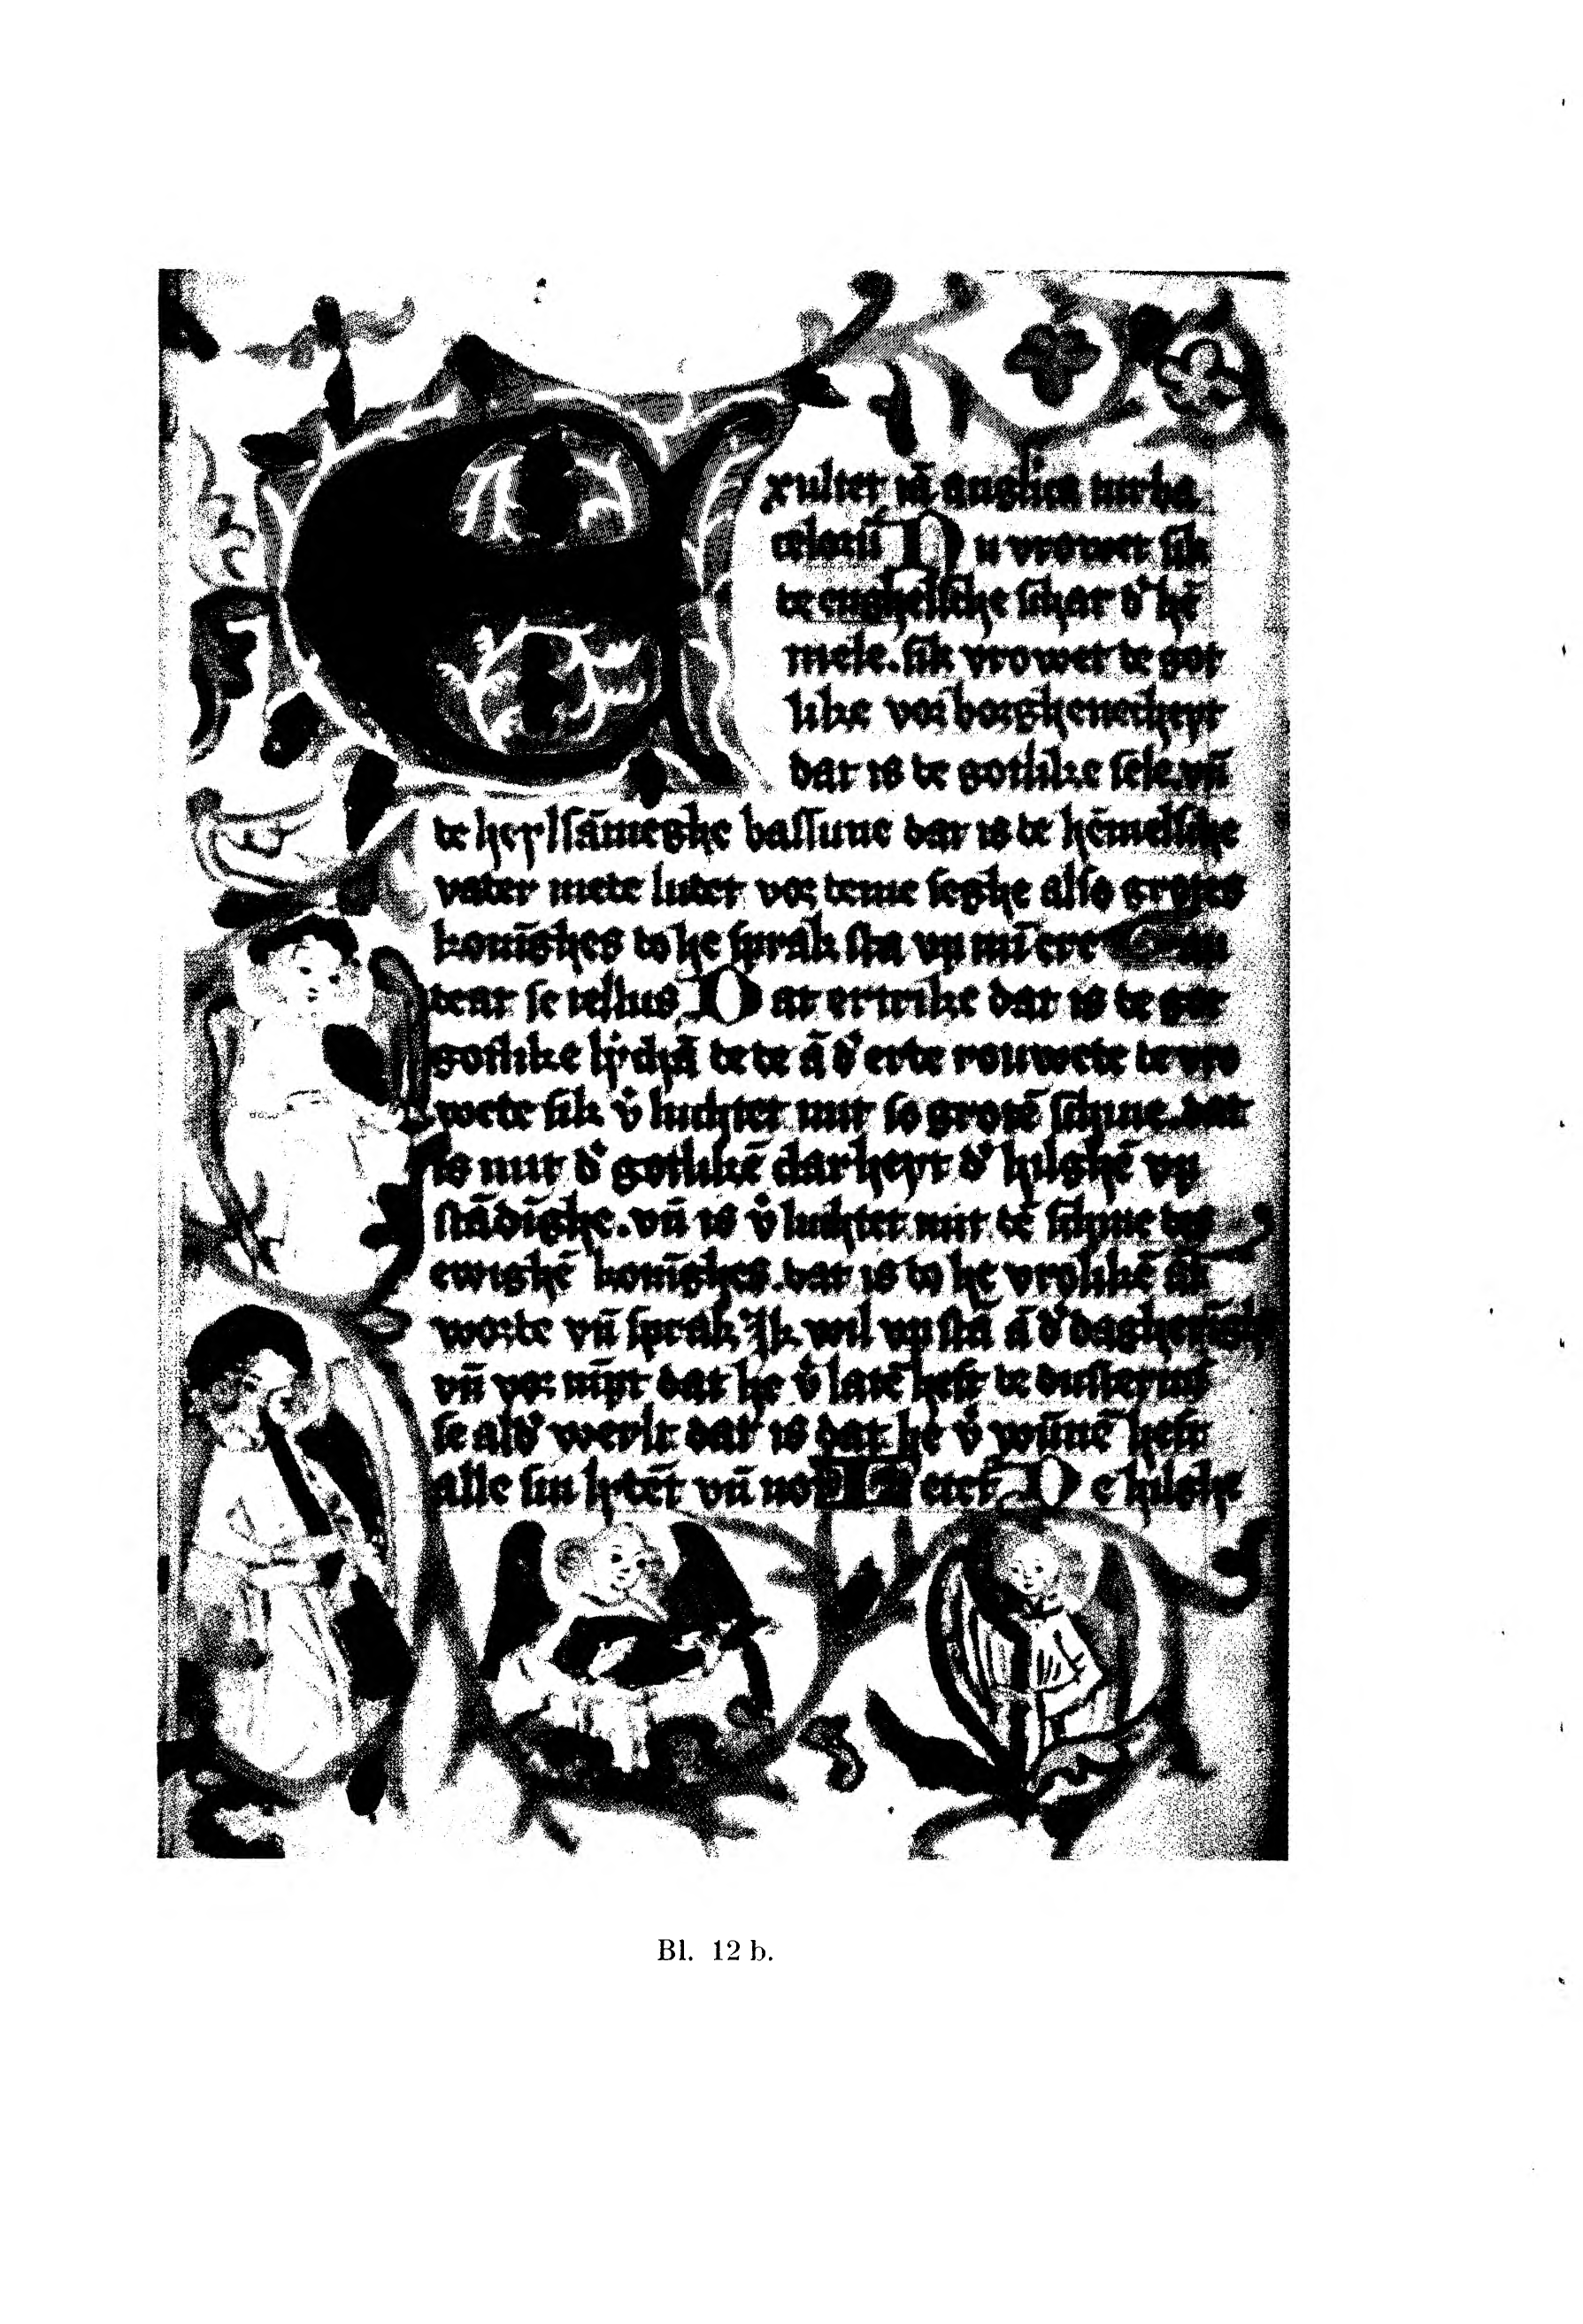 Exultet iā anglica turba
celorū Nu vrowet sik
te enghelsche schar d' hē
mele. sik vrowet te got
like vorborghenecheyt
dat is te gotlike sele. vn̄
te heylsāmeghe bassune dat is te hēmelsche
vater mete lutet vor teme seghe also grotes
konīghes to he sprak sta vp mī ere Gau
teat se tellus Dat ertrike dat is te
gotlike lychā te te ā d' erte rouwete te vro
wete sik v' luchtet mit so grotē schine. dat
is mit d' gotlikē clarheyt d' hilghē vp
stādīghe. vn̄ is v' luchtet mit tē schine des
ewighē konīghes. dat is to he vrolikē āt
worte vn̄ sprak Ik wil vp stā ā d' dagherīghe
vn̄ vor nīpt dat he v' latē heft te dusternis
se al d' werlt dat is dat he v' wūnē heft
alle sin lytēt vn̄ not Letet De hilghe
Bl. 12 b.